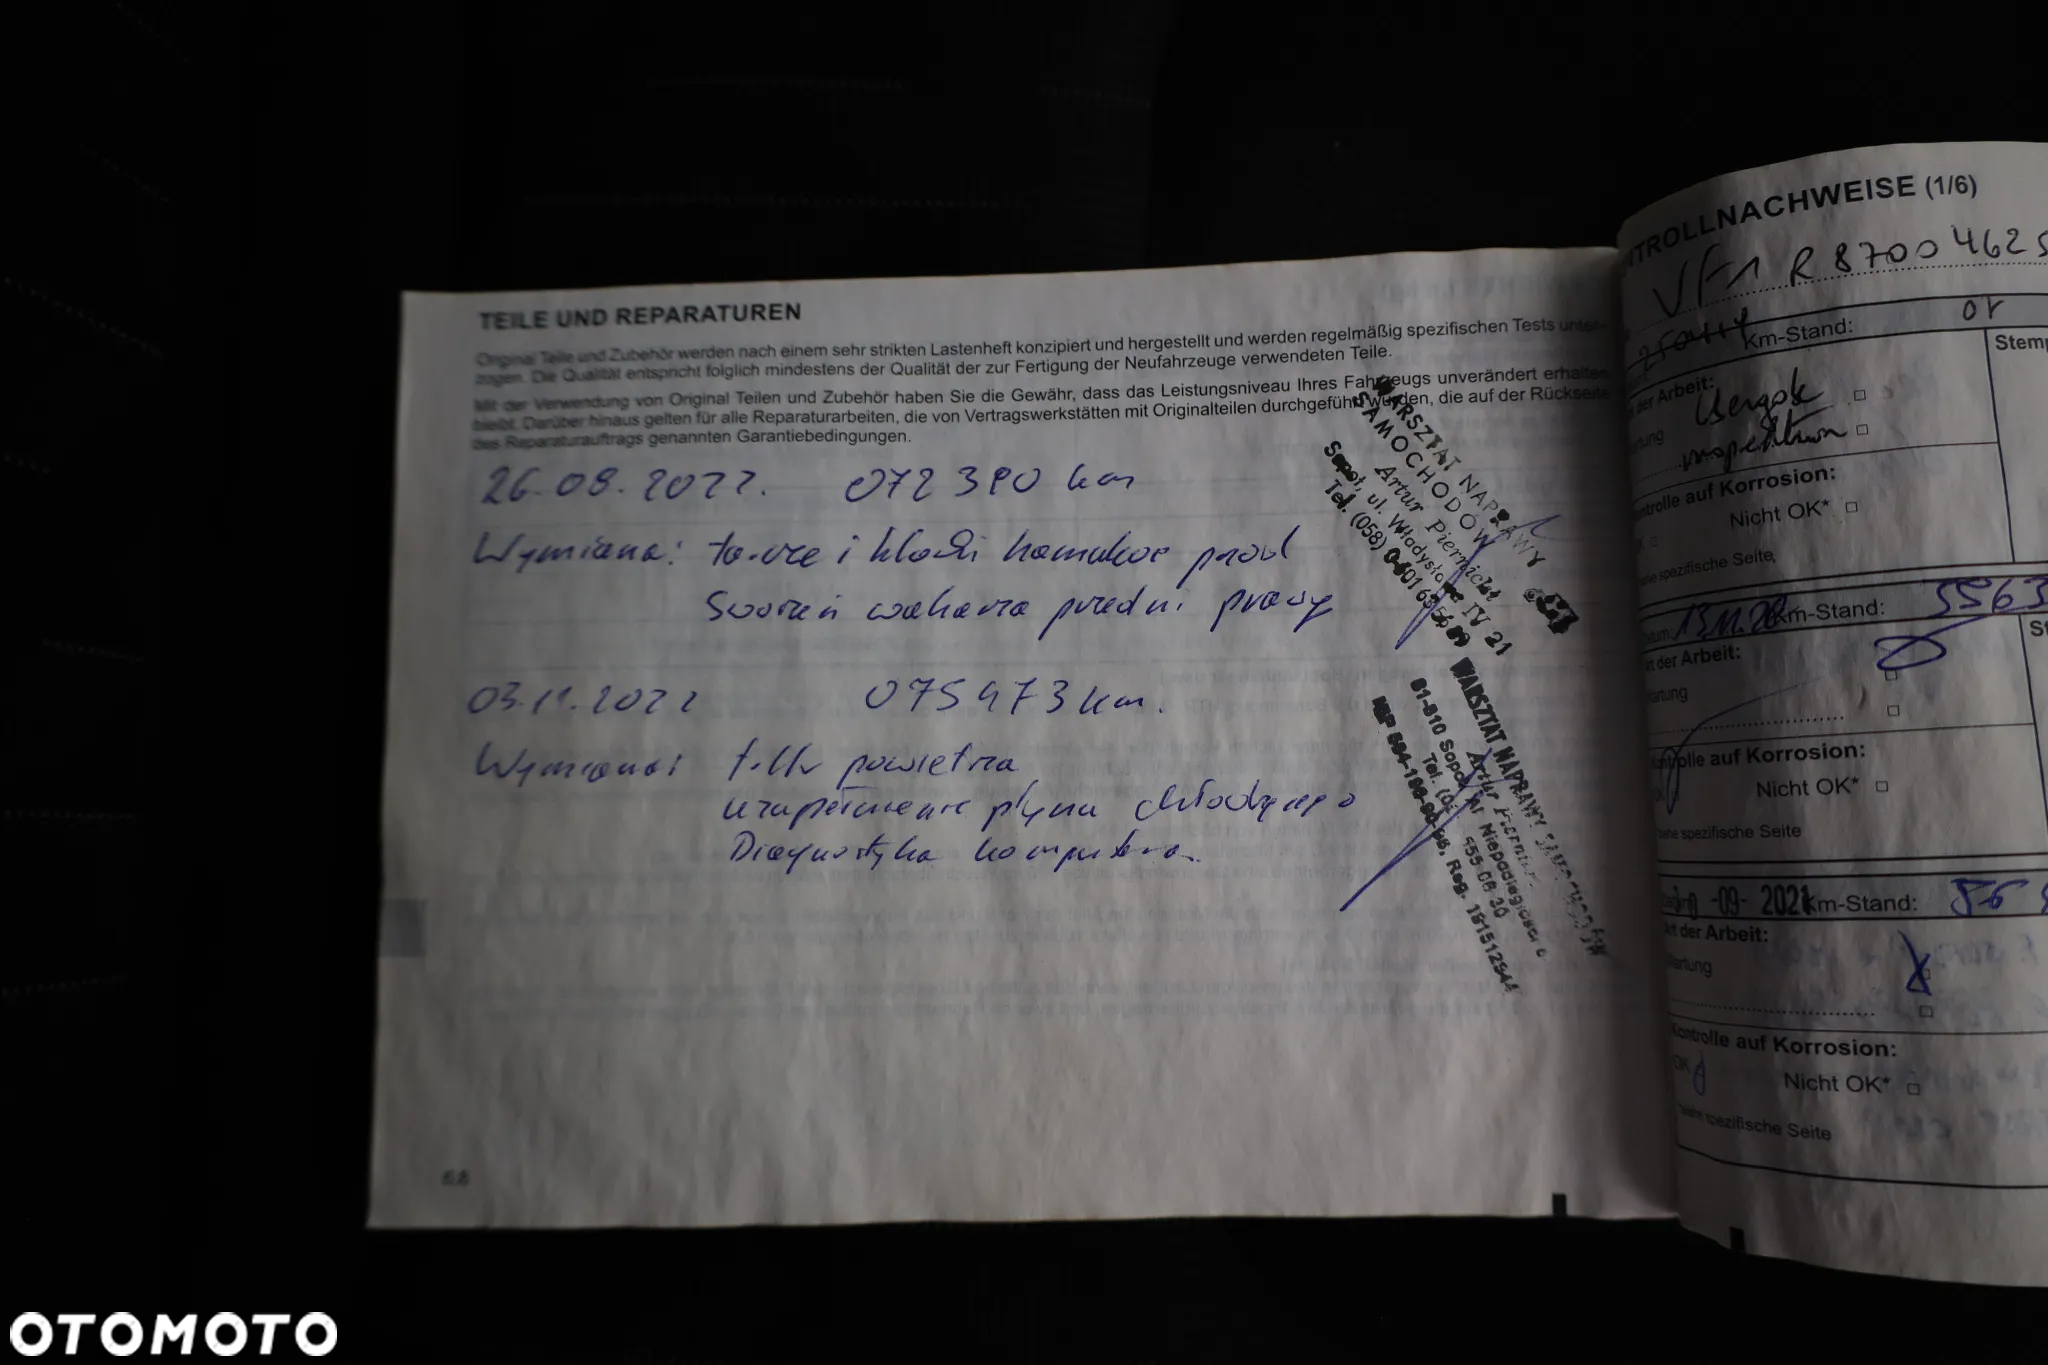 TEILE UND REPARATUREN
Original Teile und Zubehör werden nach einem sehr strikten Lastenheft konzipiert und hergestellt und werden regelmäßig spezifischen Tests unter-
zogen. Die Qualität entspricht folglich mindestens der Qualität der zur Fertigung der Neufahrzeuge verwendeten Teile.
Mit der Verwendung von Original Teilen und Zubehör haben Sie die Gewähr, dass das Leistungsniveau Ihres Fahrzeugs unverändert erhalten
bleibt. Darüber hinaus gelten für alle Reparaturarbeiten, die von Vertragswerkstätten mit Originalteilen durchgeführt wurden, die auf der Rückseite
des Reparaturauftrags genannten Garantiebedingungen.
26.08.2022. 072 390 km
Wymiana: tarcze i klocki hamulcowe przód
Sworzeń wahacza przedni prawy
03.11.2022 075 473 km.
Wymiana: filtr powietrza
uzupełnienie płynu chłodzącego
Diagnostyka komputerowa
WARSZTAT NAPRAWY
SAMOCHODÓW
Artur Piernicki
Sopot, ul. Władysława IV 21
Tel. (058)
WARSZTAT NAPRAWY
Artur
81-810 Sopot, ul. Niepodległości
Tel. 555 08 30
Reg. 191512944
68
KONTROLLNACHWEISE (1/6)
VF1 R 8700 4625
Km-Stand: 01
Stemp
der Arbeit:
Kontrolle auf Korrosion:
Nicht OK* □
siehe spezifische Seite
Datum: 13.11.20 Km-Stand: 5563
St
Art der Arbeit:
Wartung □
□
Kontrolle auf Korrosion:
Nicht OK* □
siehe spezifische Seite
-09- 2021 Km-Stand:
Art der Arbeit:
Wartung
□
Kontrolle auf Korrosion:
OK
Nicht OK* □
siehe spezifische Seite
OTOMOTO